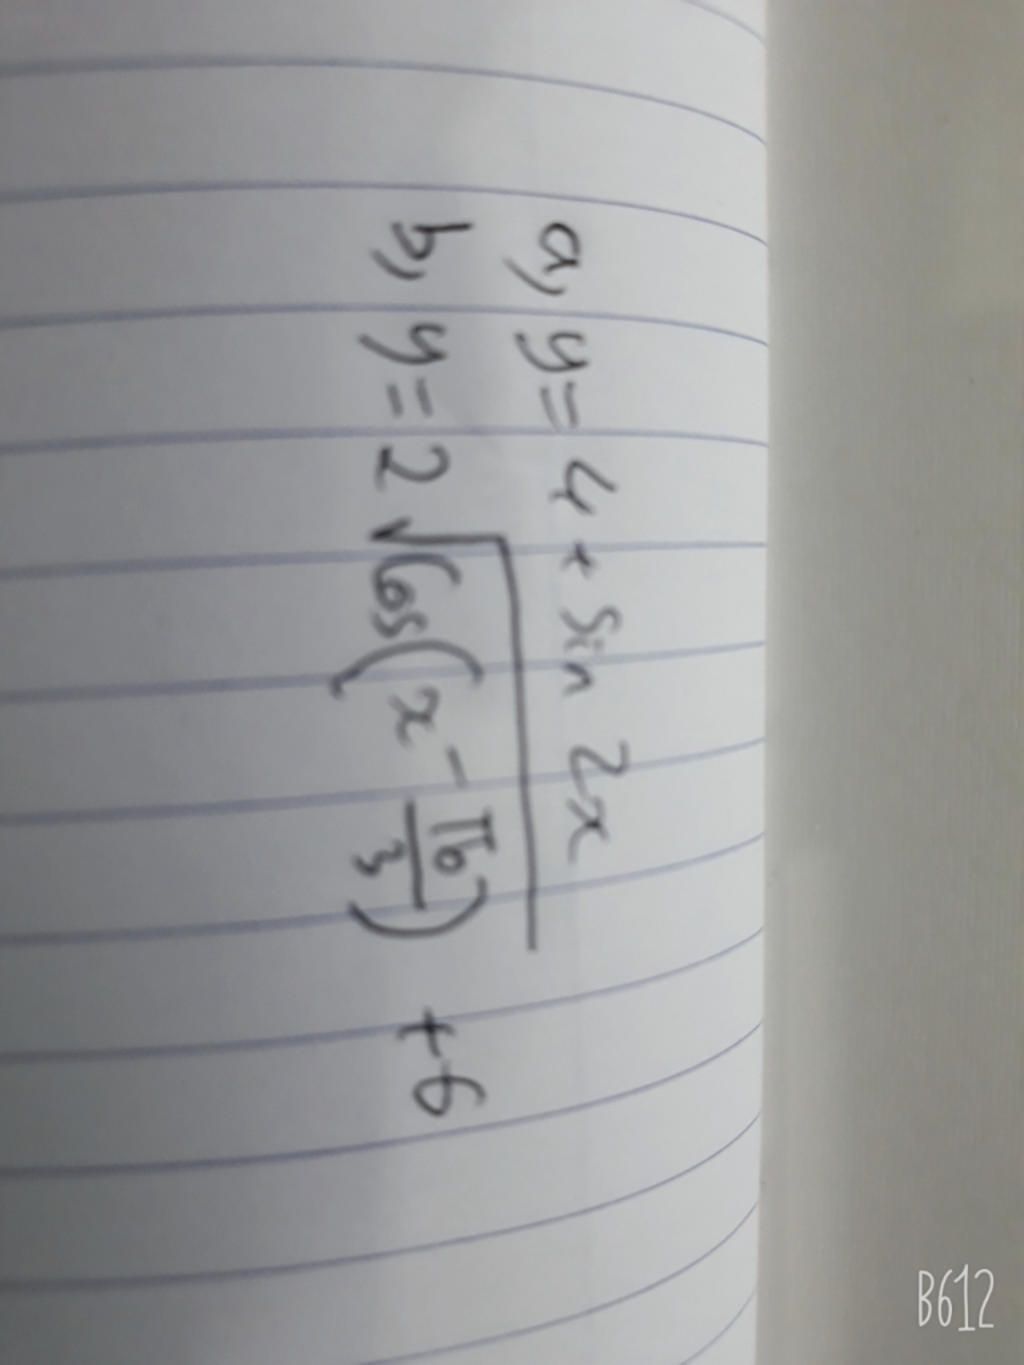 a, y = 4 + sin 2x
b, y = 2√cos(x - π6/3) + 6
B612